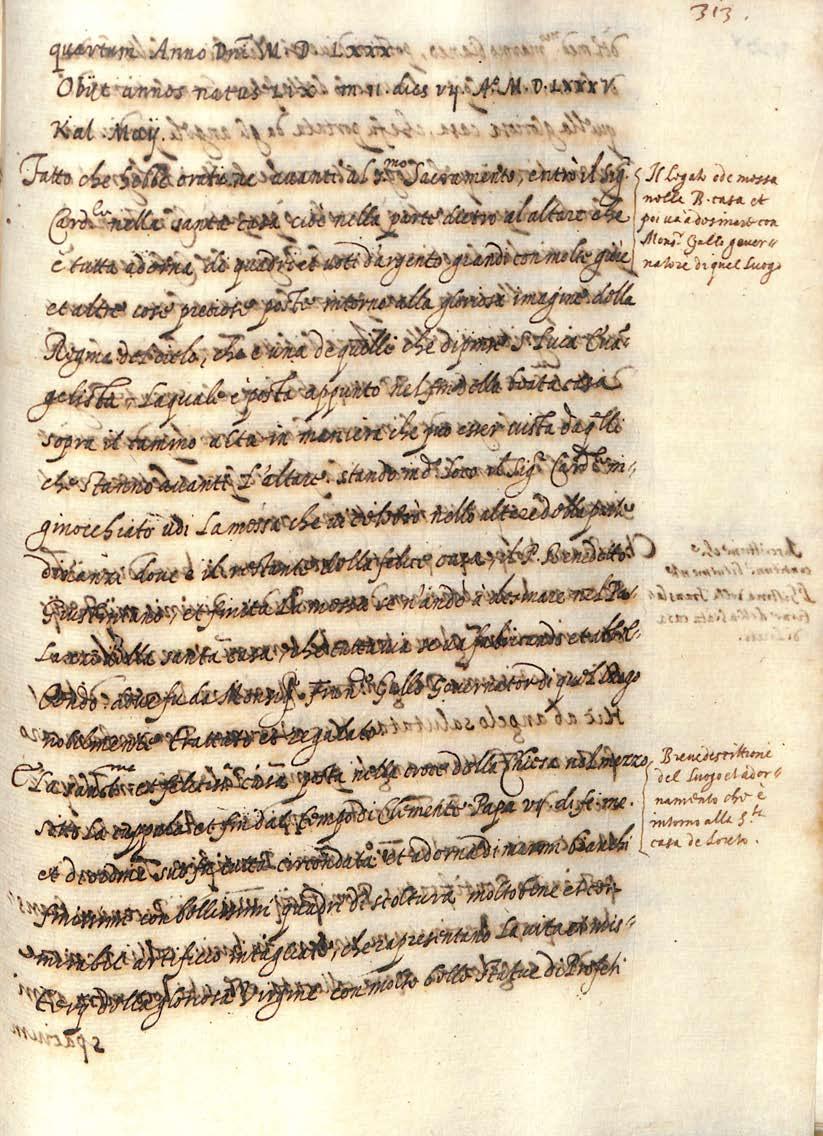 313.
quartum Anno Dnī M D LXXX
Obijt annos natus LIX m. II. dies vij A.º M.D.LXXXV.
Kal Maij.
Fatto che hebbe oratione avanti al S.mo Sacramento, entrò il Sig.r
Card.le nella santa casa cioè nella parte dietro al altare che
è tutta adorna di quadri et voti d'argento grandi con molte gioie
et altre cose preciose poste intorno alla gloriosa imagine della
Regina del cielo, che è una de quelle che dipinse S. Luca Evā-
gelista, La quale è posta appunto nel fine della beata casa
sopra il camino alta in maniera che può esser vista da q̄lli
che stanno avanti L'altare. stando in d.º loco il Sig.r Card.le in-
ginocchiato udì La messa che celebrò nello altare della parte
dinanzi dove è il restante della felice casa, il P. Benedetto
Giustiniano, et finita La messa se n'andò à desinare nel Pa-
Lazzo della santa casa, che tuttavia se va fabricando et abbel-
Lendo. dove fu da Mons.r Fran.º Gallo Governator di quel Luogo
nobilmente trattato et regalato.
La sanct.ma et felicis.ma casa posta nella croce della Chiesa nel mezzo
sotto La cuppola et fin dal tempo di Clemente Papa vij. di fe. me.
et di ordine suo fu tutta circondata et adorna di marmi bianchi
finissimi con bellissimi quadri di scoltura molto bene et con
mirabil artificio intagliati, che rapresentano La vita et mis-
terij della gloriosa Vergine con molte belle statue di Profeti
Il Legato ode messa
nella B. casa et
poi va a desinare con
Mons.r Gallo gover-
natore di quel Luogo
Breve descrittione
del Luogo et ador-
namento che è
intorno alla S.ta
casa de Loreto.